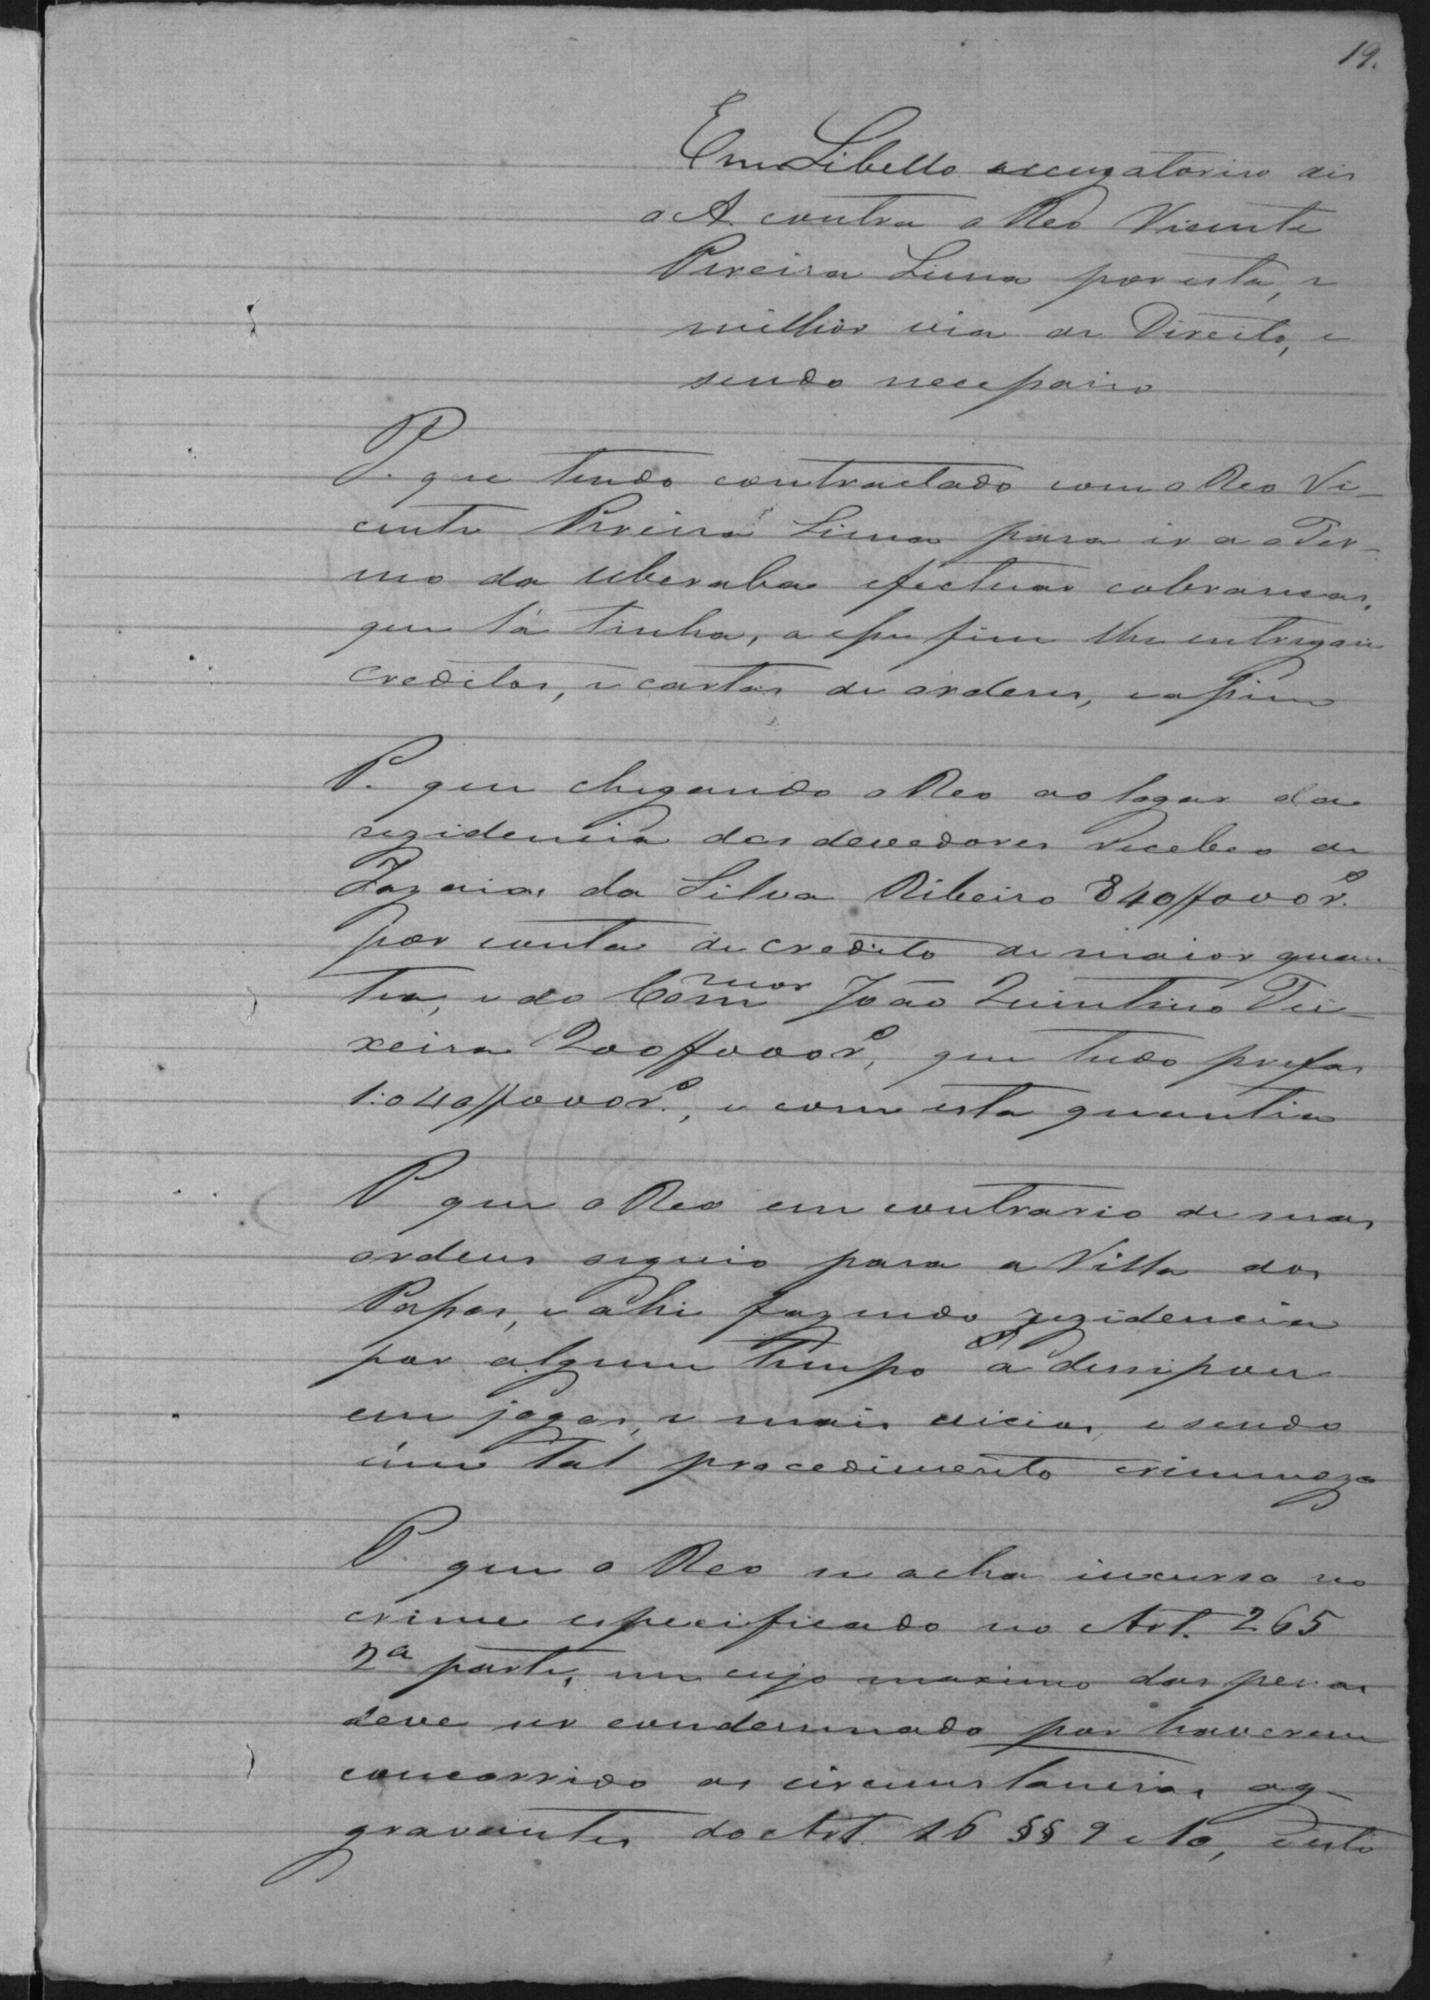 19.
Em Libello accuzatorio diz
o A. contra o Reo Vicente
Pereira Lima por esta, e
milhor via de Direito, e
sendo necessario
P. que tendo contractado com o Reo Vi-
cente Pereira Lima para ir a o Ter-
mo da Uberaba efectuar cobransas,
que lá tinha, a esse fim lhe entregou
creditos, e cartas de ordens, e assim
P. que chegando o Reo ao logar da
rezidencia dos devedores recebeo de
Zacarias da Silva Ribeiro 840//000 rs.
por conta de credito de maior quan-
tia, e do Comor João Quintino Tei-
xeira 200//000 rs, que tudo prefas
1:040//000 rs., e com esta quantia
P que o Reo em contrario de suas
ordens seguio para a Villa dos
Passos, e ahi fazendo rezidencia
por algum tempo a dessipou
em jogos, e mais vicios, e sendo
um tal procedimento criminozo
P. que o Reo se acha incurso no
crime especificado no Art. 265
2ª parte, em cujo maximo das penas
deve ser condemnado por haverem
concorrido as circumstancias ag-
gravantes do Art. 16 §§ 9 e 10, e isto